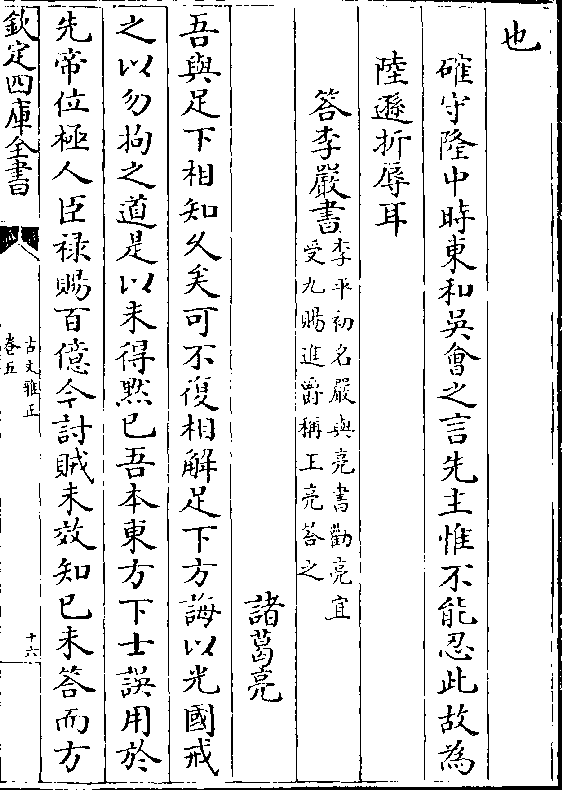 也
確守隆中時東和吳會之言先主惟不能忍此故為
陸遜折辱耳
答李嚴書李平初名嚴與亮書勸亮宜
受九賜進爵稱王亮答之
諸葛亮
吾與足下相知久矣可不復相解足下方誨以光國戒
之以勿拘之道是以未得黙已吾本東方下士誤用於
先帝位極人臣禄賜百億今討賊未效知已未答而方
欽定四庫全書
古文雅正
卷五
十六